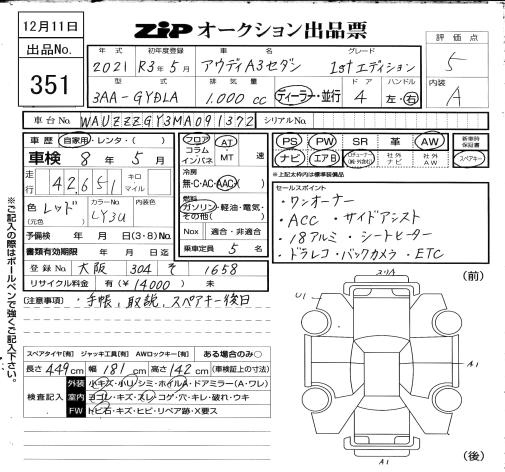 12月11日
ZIP オークション出品票
評価点
5
出品No.
351
年式 初年度登録 車名 グレード
2021 R3年5月 アウディA3セダン 1stエディション
型式 排気量 ドア ハンドル
3AA-GYDLA 1.000 cc ディーラー・並行 4 左・右
内装
A
車台No. WAUZZZGY3MA091372 シリアルNo.
車歴 自家用・レンタ・( )
車検 8年 5月
走行 42,651 キロ マイル
色 レッド (元色) カラーNo. LY3U 内装色
予備検 年 月 日(3・8)No.
書類有効期限 年 月 日迄
登録No. 大阪 304 そ 1658
リサイクル料金 有(¥14000) 未
フロア コラム インパネ AT MT 速
冷房
無・C・AC・AAC
燃料
ガソリン・軽油・電気・その他( )
Nox 適合・非適合
乗車定員 5 名
PS PW SR 革 AW 新車時保証書
ナビ エアB TVチューナー(純・外取) 社外ナビ 社外AW スペアキー
※上記太枠内は標準装備品
セールスポイント
・ワンオーナー
・ACC ・サイドアシスト
・18アルミ ・シートヒーター
・ドラレコ・バックカメラ・ETC
注意事項 ・手帳、取説、スペアキー後日
※ご記入の際はボールペンで強くご記入下さい。
スペアタイヤ[有] ジャッキ工具[有] AWロックキー[有] ある場合のみ○
長さ 449cm 幅 181cm 高さ 142cm (車検証上の寸法)
検査記入
外装 小キズ・小リ シミ・ホイルA・ドアミラー(A・ワレ)
室内 ヨゴレ・キズ・スレ・コゲ・穴・キレ・破れ・ウキ
FW トビ石・キズ・ヒビ・リペア跡・X要ス
(前)
U1
A1
A1
(後)